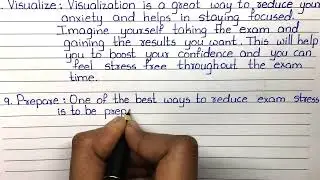 . Visualize : Visualization is a great way to reduce your
anxiety and helps in staying focused.
Imagine yourself taking the exam and
gaining the results you want. This will help
you to boost your confidence and you can
feel stress free throughout the exam
time.
9. Prepare : One of the best ways to reduce exam stress
is to be prep